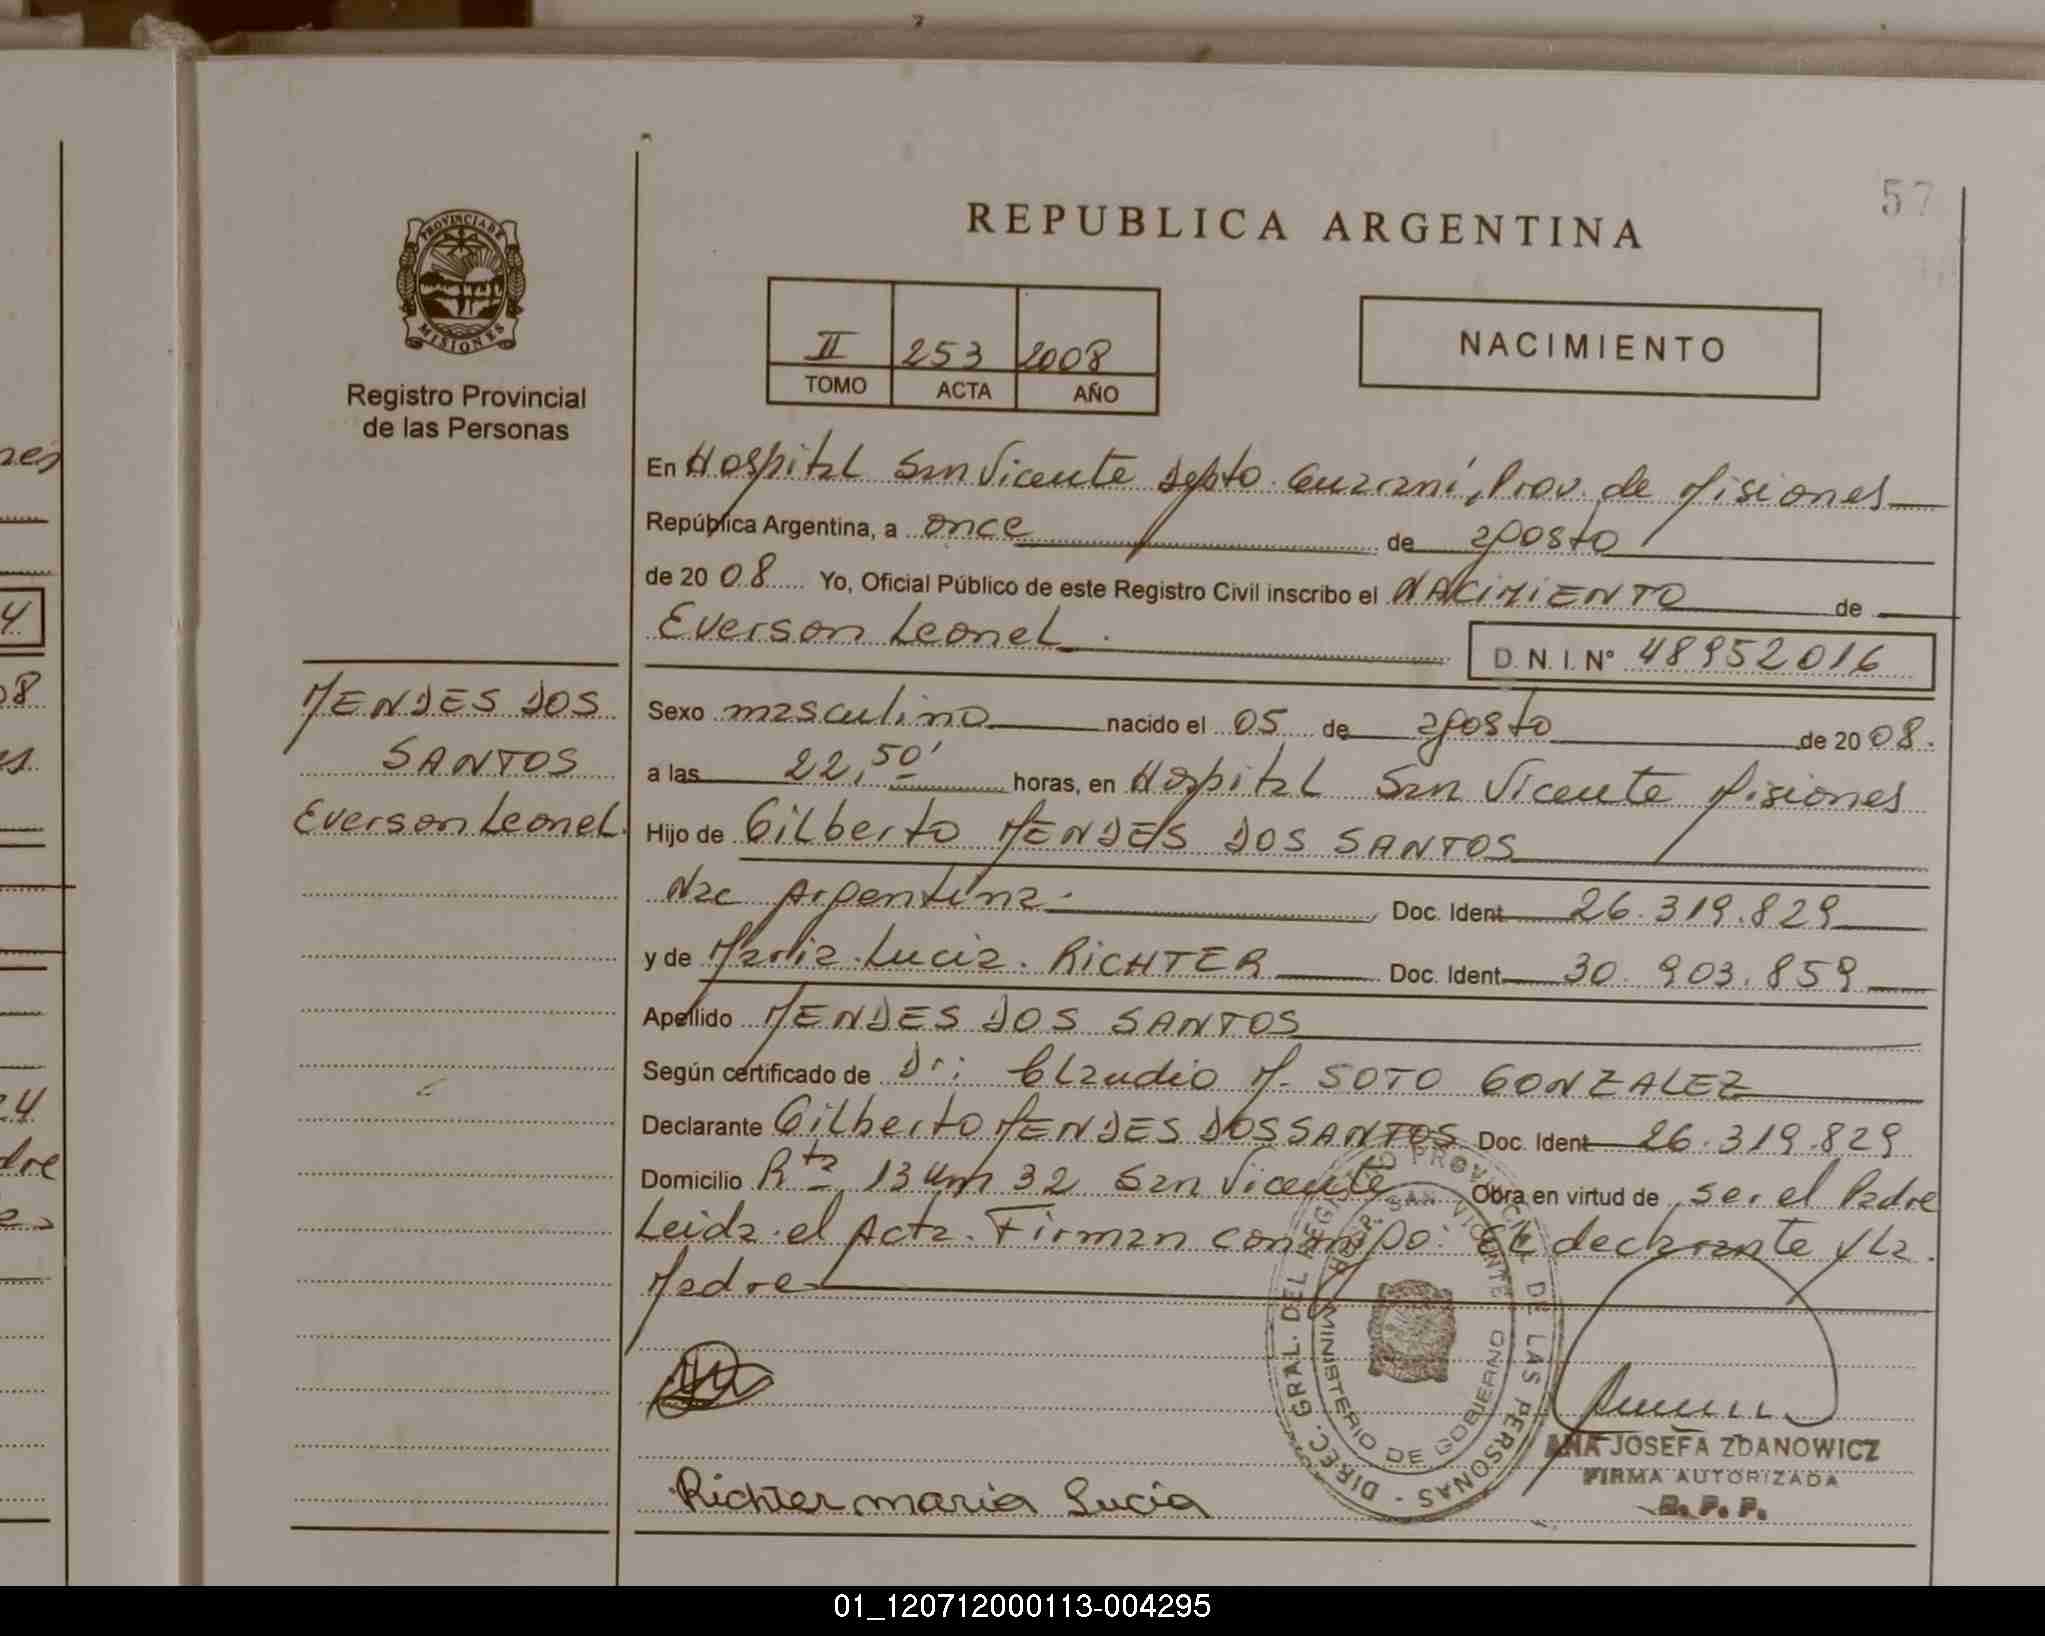 57
REPUBLICA ARGENTINA
PROVINCIA DE
MISIONES
Registro Provincial
de las Personas
II 253 2008
TOMO ACTA AÑO
NACIMIENTO
En Hospital San Vicente Depto. Guaraní, Prov. de Misiones
República Argentina, a once de agosto
de 2008 Yo, Oficial Público de este Registro Civil inscribo el NACIMIENTO de
Everson Leonel
D.N.I. Nº 48952016
MENDES DOS
SANTOS
Everson Leonel.
Sexo masculino nacido el 05 de agosto de 2008.
a las 22,50' horas, en Hospital San Vicente Misiones
Hijo de Gilberto MENDES DOS SANTOS
Nac Argentina. Doc. Ident 26.319.829
y de Maria Lucia. RICHTER Doc. Ident 30.903.859
Apellido MENDES DOS SANTOS
Según certificado de Dr: Claudio M. SOTO GONZALEZ
Declarante Gilberto MENDES DOS SANTOS Doc. Ident 26.319.829
Domicilio Rta 13 Km 32 San Vicente Obra en virtud de ser el Padre
Leida el Acta. Firman conmigo: El declarante y La
Madre
DIREC. GRAL. DEL REGISTRO PROVINCIAL DE LAS PERSONAS
SAN VICENTE
MINISTERIO DE GOBIERNO
ANA JOSEFA ZDANOWICZ
FIRMA AUTORIZADA
R. P. P.
Richter maria Lucia
01_120712000113-004295